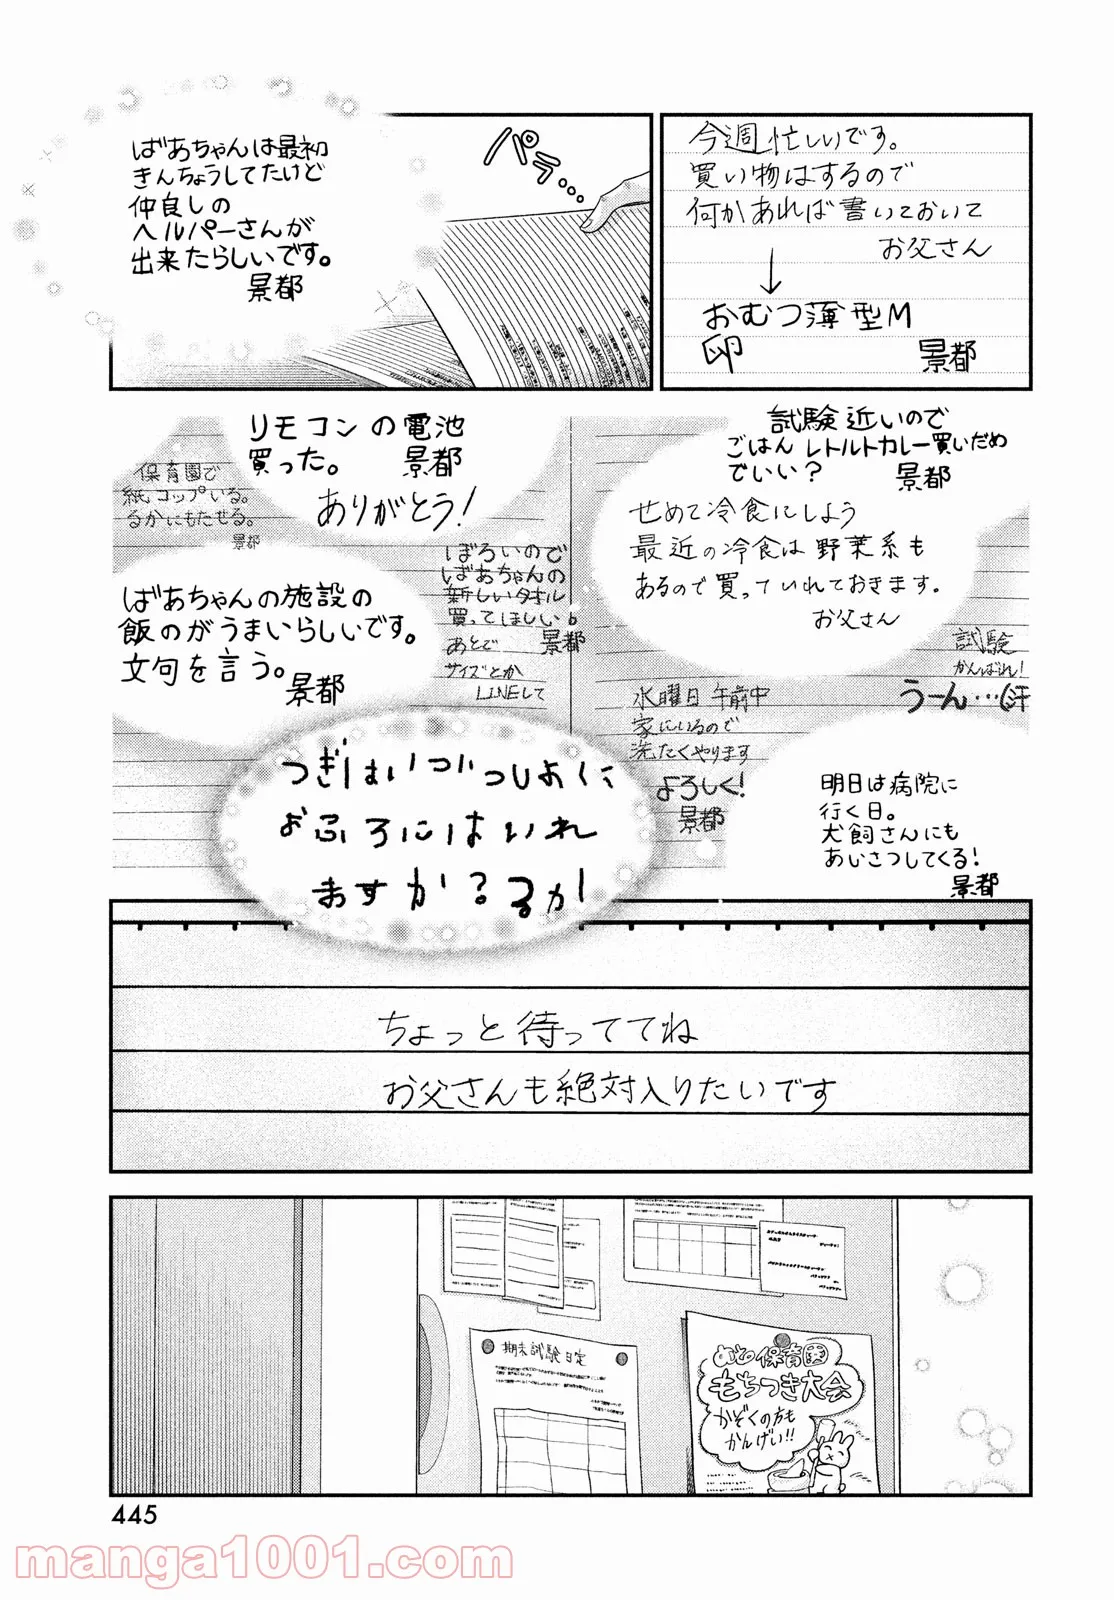 今週忙しいです。
買い物はするので
何かあれば書いておいて
お父さん
おむつ薄型M
卵
景都
パラ…
ばあちゃんは最初
きんちょうしてたけど
仲良しの
ヘルパーさんが
出来たらしいです。
景都
試験近いので
ごはんレトルトカレー買いだめ
でいい?
景都
せめて冷食にしよう
最近の冷食は野菜系も
あるので買っていれておきます。
お父さん
試験
がんばれ!
うーん…(汗
リモコンの電池
買った。
景都
ありがとう!
保育園で
紙コップいる。
るかにもたせる。
景都
ぼろいので
ばあちゃんの
新しいタオル
買ってほしい。
景都
あとで
サイズとか
LINEして
ばあちゃんの施設の
飯のがうまいらしいです。
文句を言う。
景都
水曜日午前中
家にいるので
洗たくやります
よろしく!
景都
明日は病院に
行く日。
犬飼さんにも
あいさつしてくる!
景都
つぎはいついっしょに
おふろにはいれ
ますか?るか
ちょっと待っててね
お父さんも絶対入りたいです
期末試験日定
保育園
もちつき大会
かぞくの方も
かんげい!!
445
manga1001.com